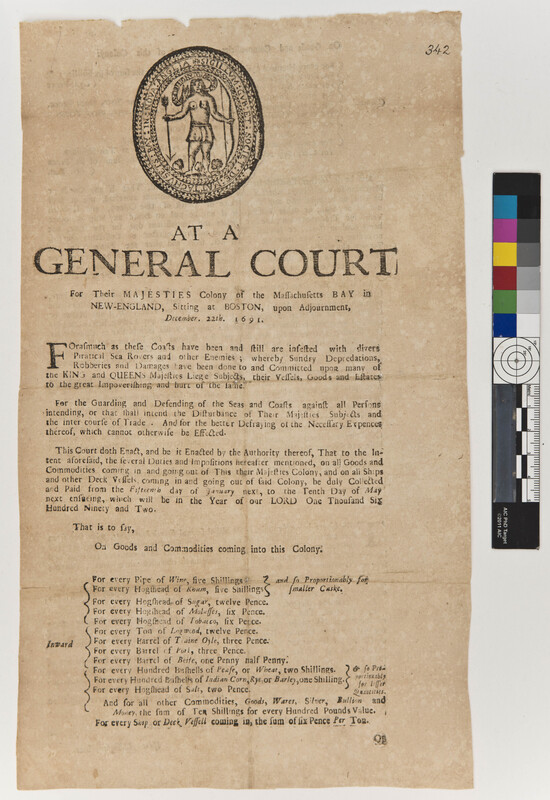 342
AT A
GENERAL COURT
For Their MAJESTIES Colony of the Maſſachuſetts BAY in
NEW-ENGLAND, Sitting at BOSTON, upon Adjournment,
December. 22th. 1691.
FOraſmuch as theſe Coaſts have been and ſtill are infeſted with divers
Piratical Sea Rovers and other Enemies; whereby Sundry Depredations,
Robberies and Damages have been done to and Committed upon many of
the KING and QUEENS Majeſties Liege Subjects, their Veſſels, Goods and Eſtates
to the great Impoveriſhing and hurt of the ſame.
For the Guarding and Defending of the Seas and Coaſts againſt all Perſons
intending, or that ſhall intend the Diſturbance of Their Majeſties Subjects and
the inter courſe of Trade. And for the better Defraying of the Neceſſary Expences
thereof, which cannot otherwiſe be Effected.
This Court doth Enact, and be it Enacted by the Authority thereof, That to the In-
tent aforeſaid, the ſeveral Duties and Impoſitions hereafter mentioned, on all Goods and
Commodities coming in and going out of This their Majeſties Colony, and on all Ships
and other Deck Veſſels coming in and going out of ſaid Colony, be duly Collected
and Paid from the Fifteenth day of January next, to the Tenth Day of May
next enſueing, which will be in the Year of our LORD One Thouſand Six
Hundred Ninety and Two.
That is to ſay,
On Goods and Commodities coming into this Colony.
For every Pipe of Wine, five Shillings and ſo Proportionably for
For every Hogſhead of Rhum, five Shillings ſmaller Caske.
For every Hogſhead of Sugar, twelve Pence.
For every Hogſhead of Molaſſes, ſix Pence.
For every Hogſhead of Tobacco, ſix Pence.
For every Ton of Logwood, twelve Pence.
Inward
For every Barrel of Traine Oyle, three Pence.
For every Barrel of Pork, three Pence.
For every Barrel of Beife, one Penny half Penny.
For every Hundred Buſhells of Peaſe, or Wheat, two Shillings. & ſo Pro-
For every Hundred Buſhells of Indian Corn, Rye or Barley, one Shilling. portionably
for leſſer
For every Hogſhead of Salt, two Pence. Quantities.
And for all other Commodities, Goods, Wares, Silver, Bullion and
Money, the ſum of Ten Shillings for every Hundred Pounds Value.
For every Ship or Deck Veſſell coming in, the ſum of ſix Pence Per Ton.
On